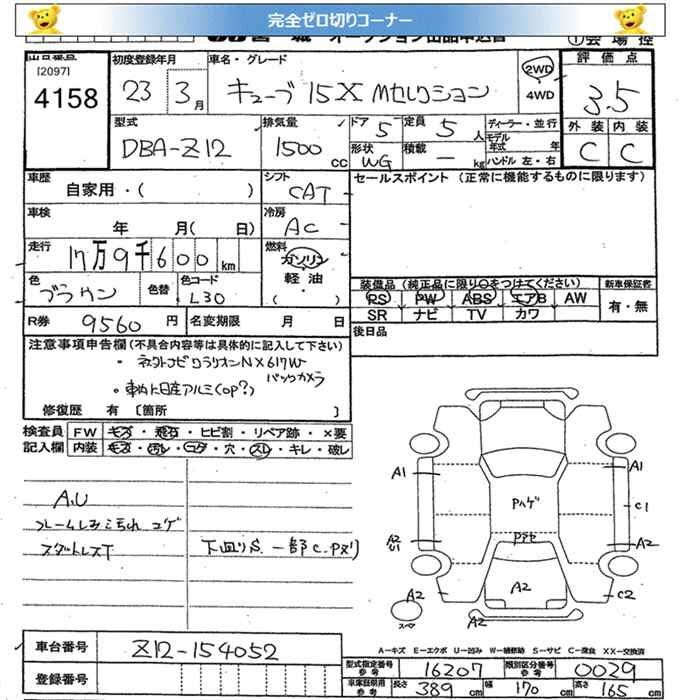 完全ゼロ切りコーナー
オークション出品申込書 ①会場控
出品番号 初度登録年月 車名・グレード 評価点
[2097]
4158 23 3月 キューブ 15X Mセレクション 2WD 4WD 3.5
型式 排気量 ドア 5 定員 5人 ディーラー・並行 外装 内装
モデル年式 年
DBA-Z12 1500cc 形状 WG 積載 ー kg ハンドル 左・右 C C
車歴 シフト セールスポイント (正常に機能するものに限ります)
自家用・( ) CAT
車検 冷房
年 月( 日) AC
走行 燃料
17万9千600km ガソリン
色 色替 色コード 軽油 装備品 (純正品に限り○をつけてください) 新車保証書
ブラウン L30 ・( ) PS PW ABS エアB AW 有・無
R券 9560円 名変期限 月 日 SR ナビ TV カワ
注意事項申告欄 (不具合内容等は具体的に記入して下さい) 後日品
バックカメラ
修復歴 有 [箇所 ]
検査員 FW キズ・飛石・ヒビ割・リペア跡・×要
記入欄 内装 キズ・汚レ・コゲ・穴・スレ・キレ・破レ
A1 A1
A.U Pハゲ C1
A2 U1 A2
スタットレスT
A2 A2 C2
A2
A-キズ E-エクボ U-凹み W-補修跡 S-サビ C-腐食 XX-交換済
車台番号 Z12-154052
型式指定番号 参考 16207 類別区分番号 参考 0029
登録番号 車庫証明用 参考 長さ 389cm 幅 170cm 高さ 165cm